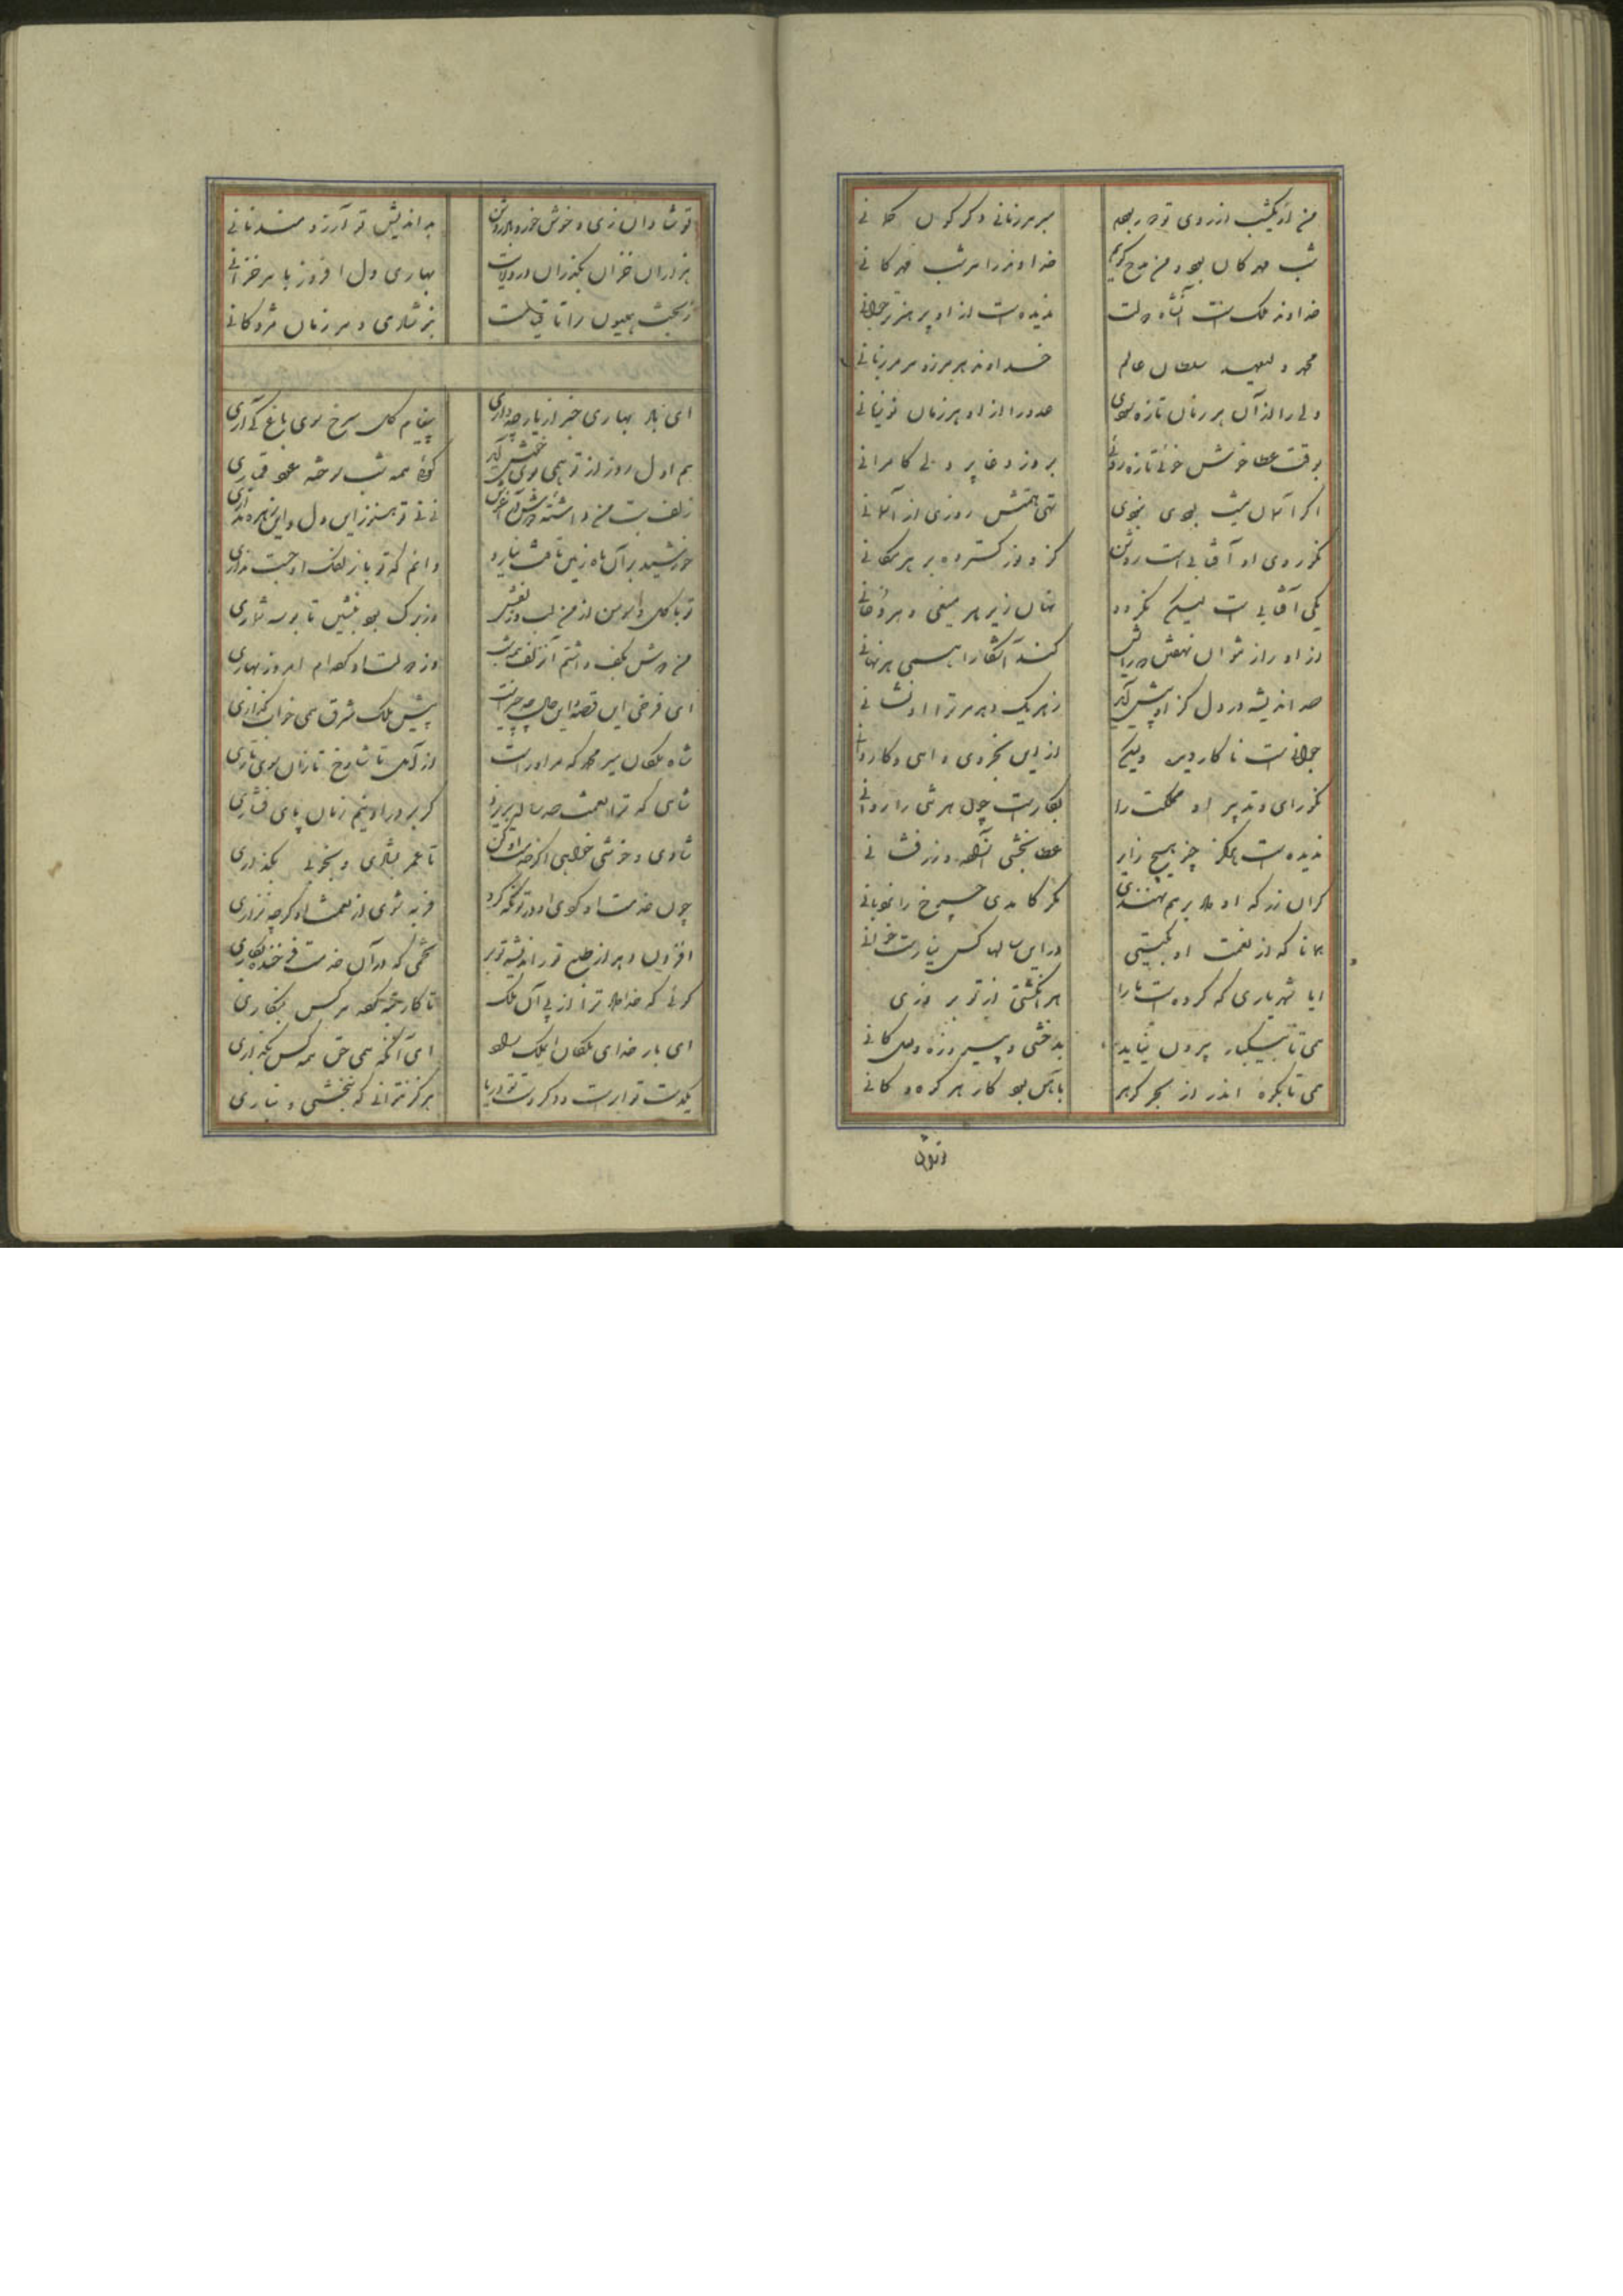 من از یکشب از روی تو دور بودم بهر زمانی دگرگون
شب مهرکان بود و من مدح گویم خداوند را هر شب مهرکانی
خداوند ملک آنشاه دولت ندیده ست ازو پر هنرتر جوانی
محمد ولیعهد سلطان عالم خداوند هر مرز و هر مرزبانی
ولی را ازان هر زمان تازه سودی عدو را ازو هر زمان نو زیانی
بوقت عطا خوش خوی تازه رویی بروز وغا پر دلی کامرانی
اگر آسمان پیش بودی نبودی تهی همتش روزی از آسمانی
نکو روی او آفتابی ست روشن کزو نور گسترده بر هر مکانی
یکی آفتابی ست لیکن نگردد نهان زیر هر میغی و هر دخانی
ازو راز نتوان نهفتن که رایش کند آشکارا همی هر نهانی
صد اندیشه در دل کن او پیش آید زهر یک دهد مر ترا او نشانی
جوانست نا کار دیده ولیکن ازین بخردی داهی و کاردانی
نکو رای و تدبیر او مملکت را بکارست چون هر تنی را روانی
ندیده ست هرگز چنو هیچ زایر عطا بخشی آزاده زر فشانی
گران زر که او داد بر هم نهندی مگر کامدی چرخ را نردبانی
همانا که از نعمت او بگیتی درین سالها کس نیارست خوانی
ایا شهریاری که کرده ست ما را هر انگشتی از تو بروزی
همی تا بییکبار بیرون نیاید بدخشی و پیروزه و لعل کانی
همی تا نگردد اندر از بحر گوهر بآهن بود کار هر گرد و کانی
تو شادان زی و خوش خور و باده نوش بداندیش تو آرزومند نانی
هزاران خزان بگذران در ولایت بهاری دل افروز با هر خزانی
ز بخت همیون را تا قیامت بنو شادی و هر زمان مژدگانی
ای باد بهاری خبر از یار چه داری پیغام گل سرخ سوی باغ کی آری
هم اول روز از تو همی بوی خوش آید گویی همه شب سوخته عود قماری
زلف بت من داشته دوش در آغوش نی نی تو هنوز این دل و این زهره نداری
خورشید بر آن ماه زمین تافت نیارد دانم که تو با زلفک او جست نیاری
تو با گل و سوسن زن و من با لب و زلفش وز برگ بود بنشین تا بوسه شماری
من دوش بکف داشتم آن زلف همه شب وز دولت او کردم امروز بهاری
ای فرخی این قصه و این حال چه چیزست پیش ملک شرق همی خوان بگزاری
شاه ملکان میر محمد که مر او راست از آمل تا شاوخ تا زان سوی ساری
شاهی که ترا نعمت صد ساله بریزد گر بر در او نیم زمان پای فشاری
شادی و خوشی خواهی اگر خدمت او کن تا عمر بشادی و بخوبی بگذاری
چون خدمت او کردی او در تو نگه کرد فربه شوی از نعمت او گر چه نزاری
افزون دهد از طمع تو ز اندیشه تو بر تخمی که در آن خدمت فرخنده بکاری
گویی که خداوند ترا از پی آن ملک تا کار همه کس بنگاری
ای بار خدای ملکان ای ملک راد ای آنکه همی حق همه کس بگزاری
یکدست تو ابرست و دگر دست تو دریا هرگز نتوانی که نبخشی و نباری